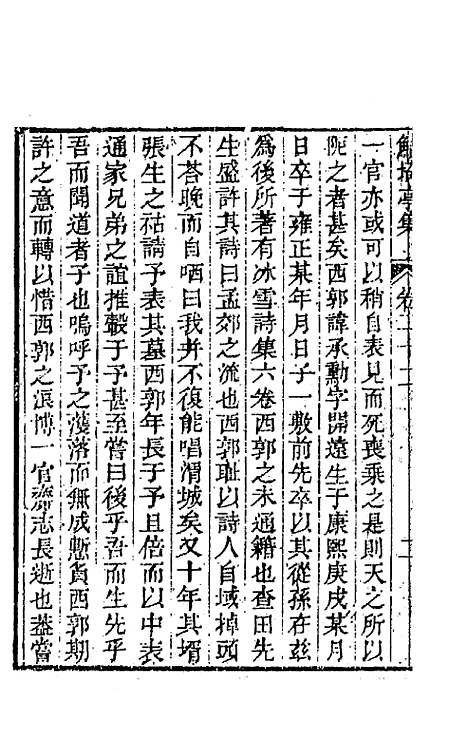 鮚埼亭集 卷二十
一官亦或可以稍自表見而死喪乘之是則天之所以
阨之者甚矣西郭諱承勳字開遠生于康熙庚戌某月
日卒于雍正某年月日子一敷前先卒以其從孫存茲
爲後所著有冰雪詩集六卷西郭之未通籍也查田先
生盛許其詩曰孟郊之流也西郭耻以詩人自域掉頭
不荅晚而自哂曰我并不復能唱渭城矣又十年其壻
張生之祜請予表其墓西郭年長于予且倍而以中表
通家兄弟之誼推轂于予甚至嘗曰後乎吾而生先乎
吾而聞道者子也嗚呼予之濩落而無成慙負西郭期
許之意而轉以惜西郭之浪博一官齎志長逝也葢嘗